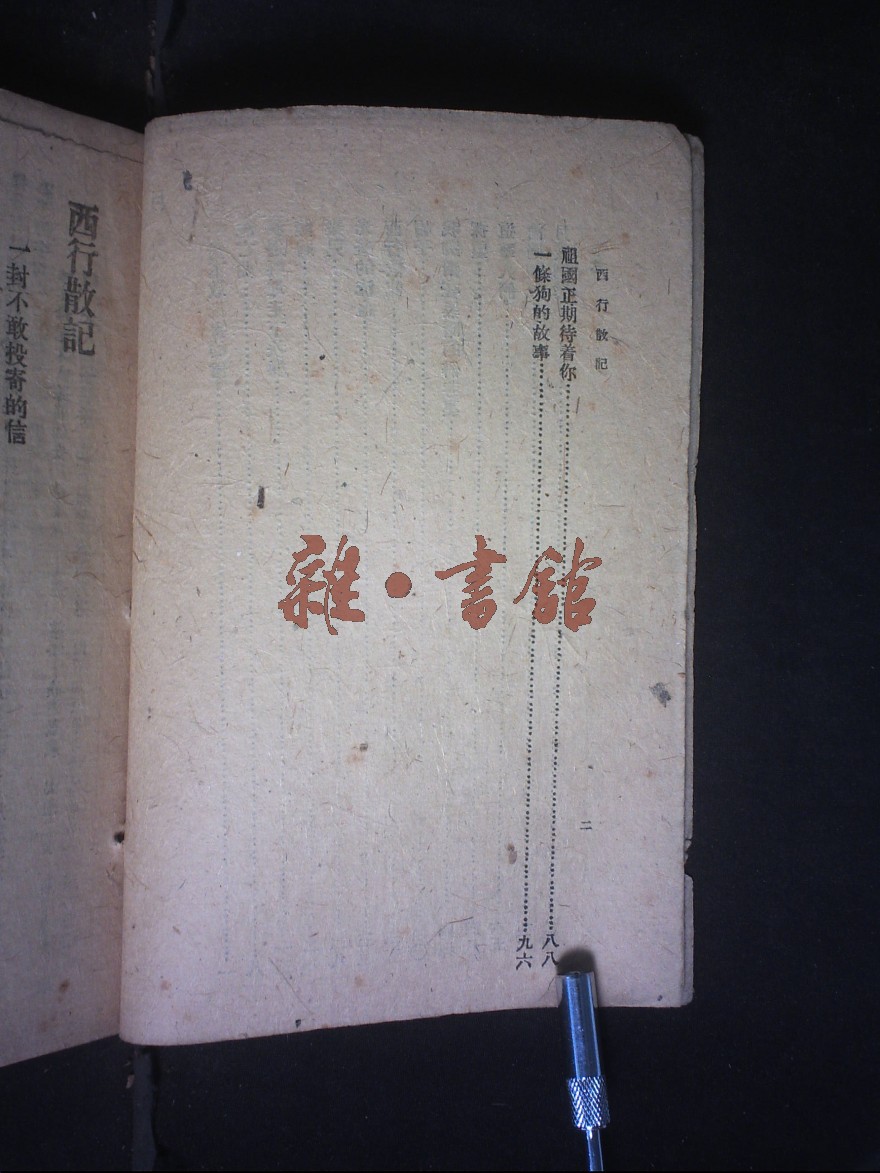 西行散記
祖國正期待着你……八八
一條狗的故事……九六
二
西行散記
一封不敢投寄的信
雜·書館